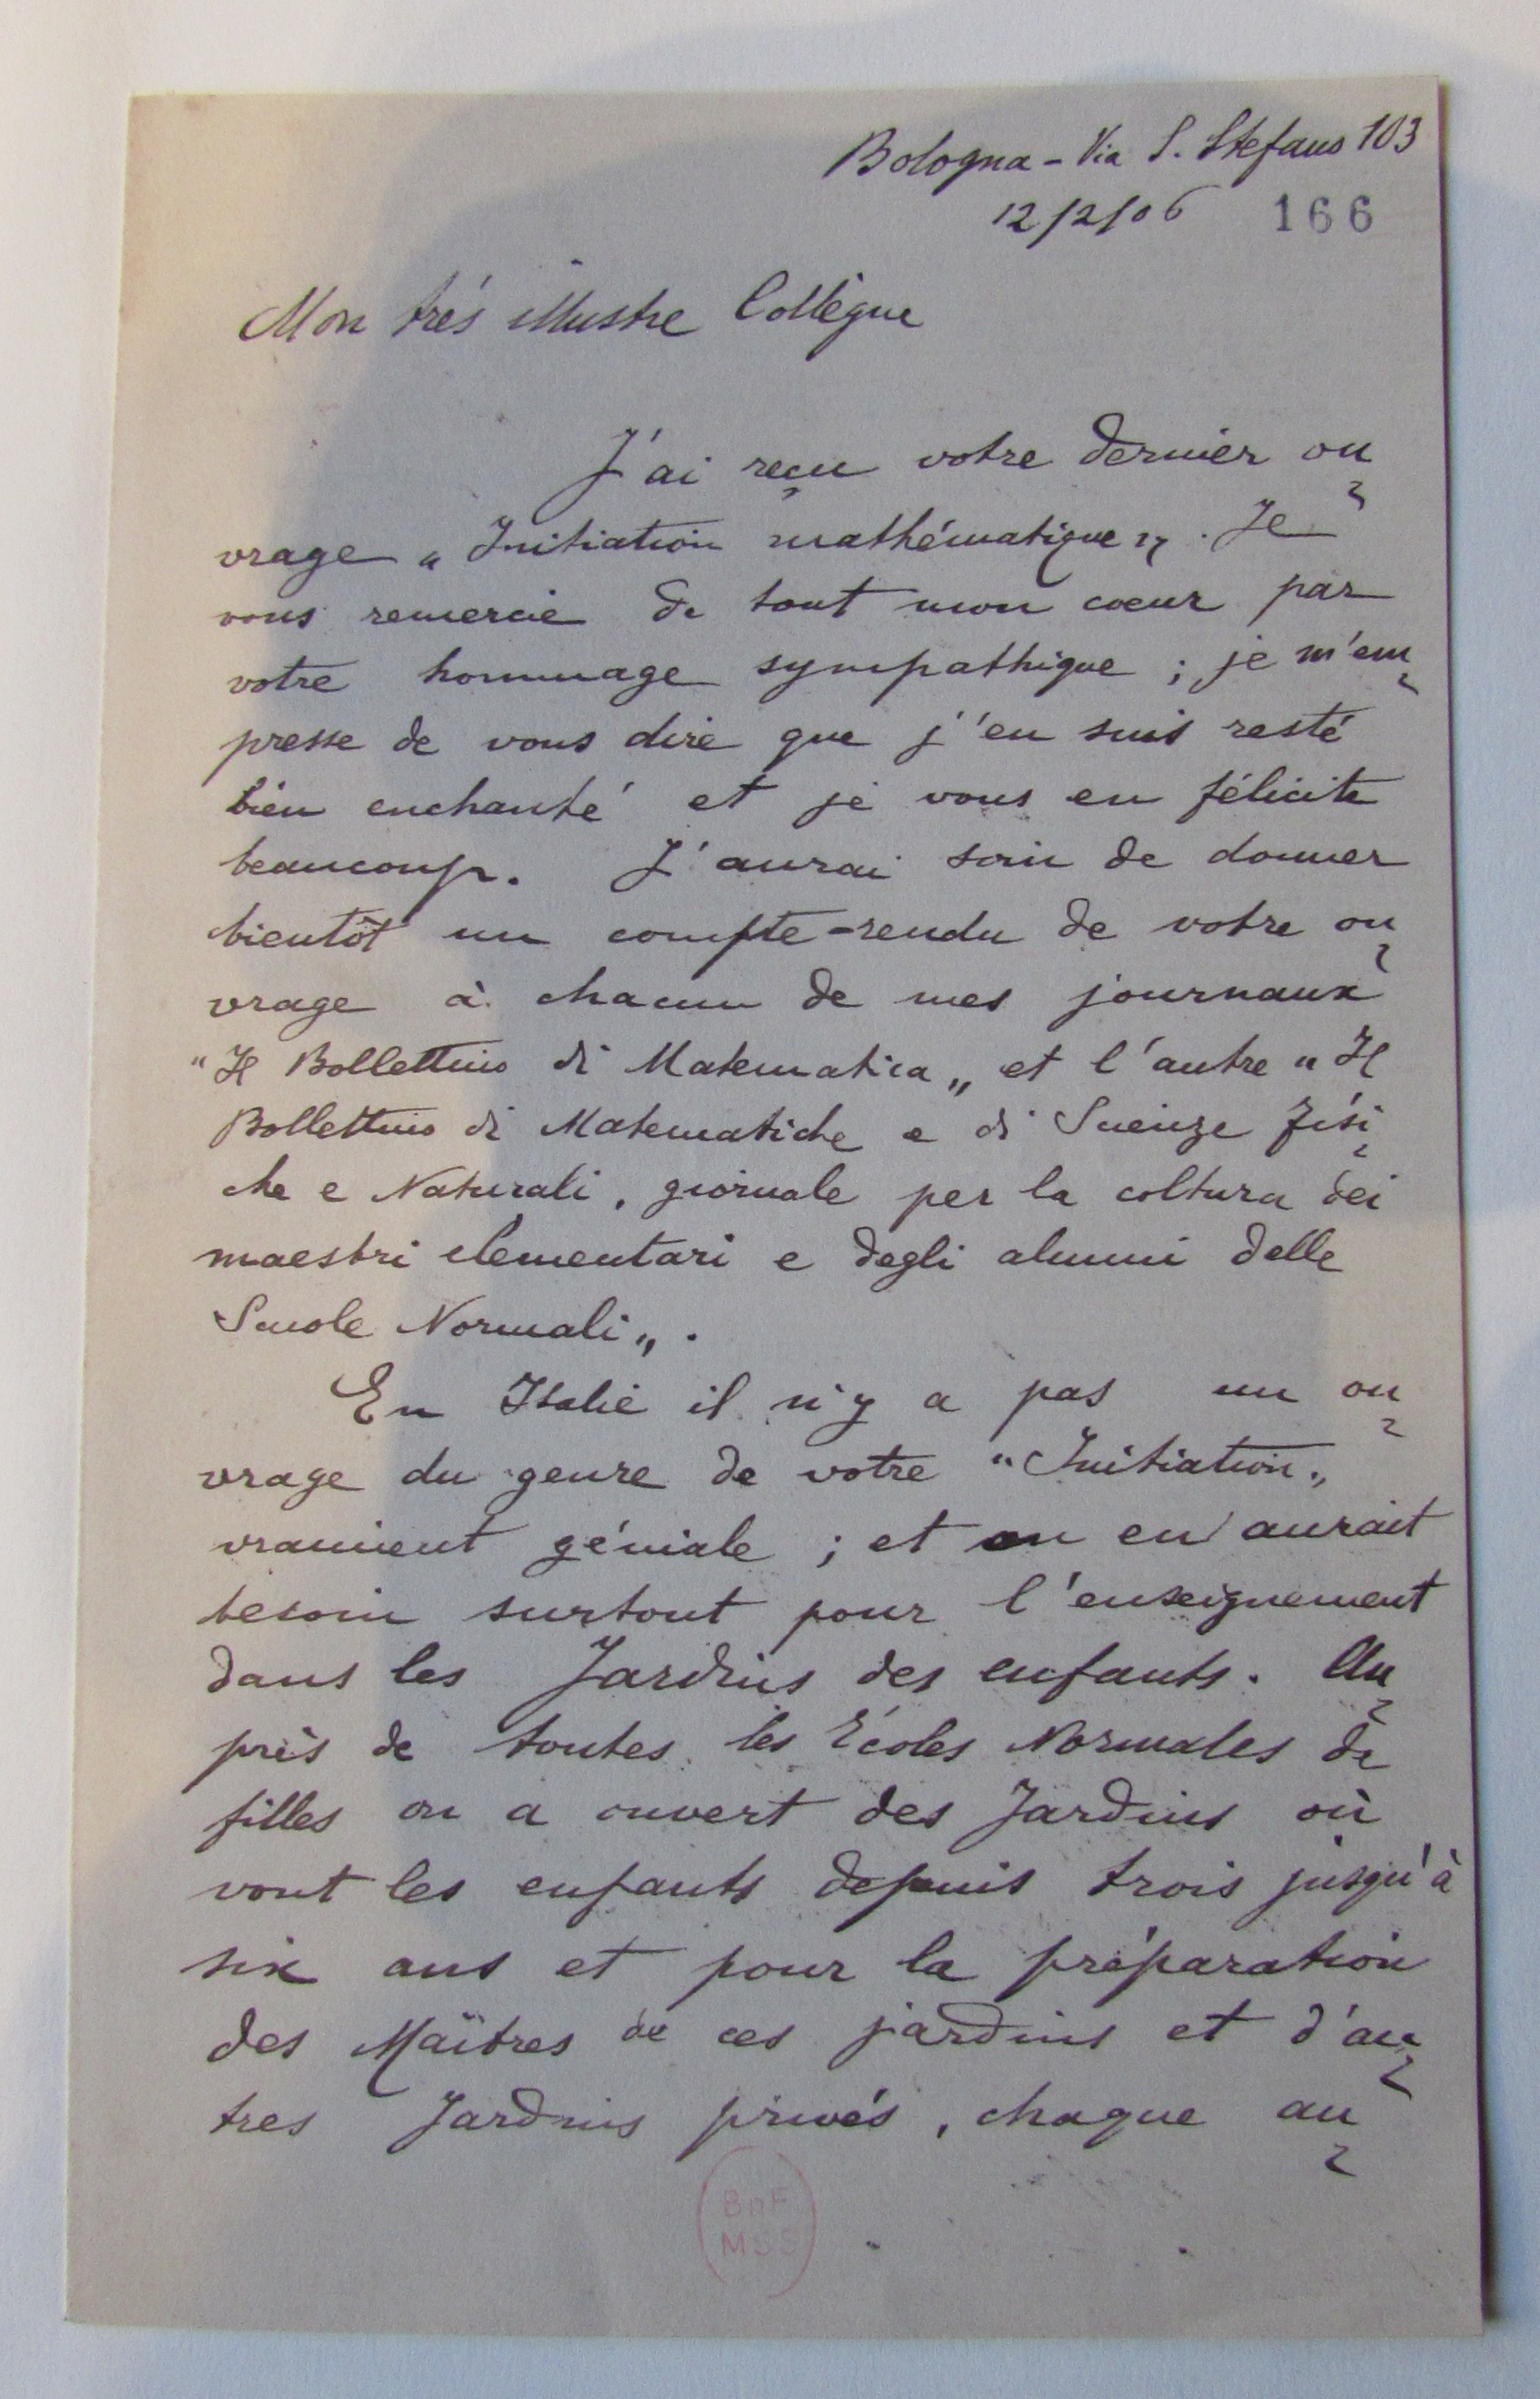 Bologna - Via S. Stefano 103
12/2/06 166
Mon trés illustre Collègue
J'ai reçu votre dernier ou
vrage „ Initiation mathématique „. Je
vous remercie de tout mon coeur par
votre hommage sympathique ; je m'em
presse de vous dire que j'en suis resté
bien enchanté et je vous en félicite
beaucoup. J'aurai soin de donner
bientôt un compte-rendu de votre ou
vrage à chacun de mes journaux
"Il Bollettino di Matematica„ et l'autre "Il
Bollettino di Matematiche e di Scienze Fisi
che e Naturali, giornale per la coltura dei
maestri elementari e degli alunni delle
Scuole Normali„.
En Italie il n'y a pas un ou
vrage du genre de votre "Initiation„
vraiment géniale ; et on en aurait
besoin surtout pour l'enseignement
dans les Jardins des enfants. Au
près de toutes les Écoles Normales de
filles on a ouvert des Jardins où
vont les enfants depuis trois jusqu'à
six ans et pour la préparation
des Maîtres de ces jardins et d'au
tres Jardins privés, chaque an
BnF
MSS